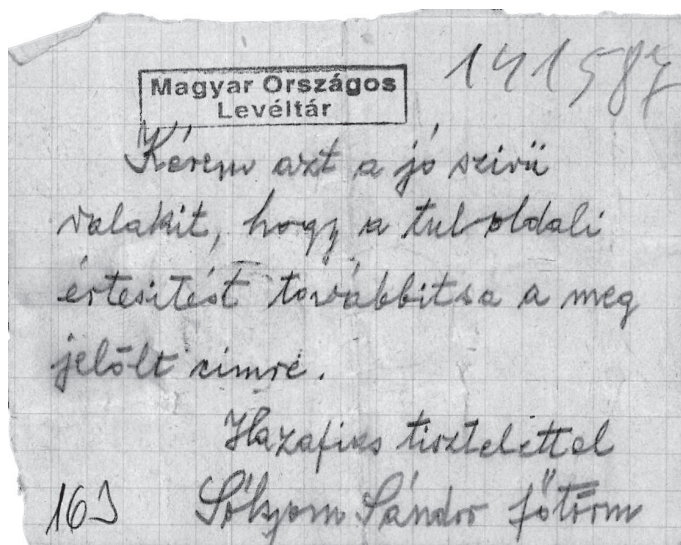 141587
Magyar Országos
Levéltár
Kérem azt a jó szivü
valakit, hogy a tuloldali
értesitést továbbitsa a meg
jelölt cimre.
Hazafias tisztelettel
Sándor főtörm
163